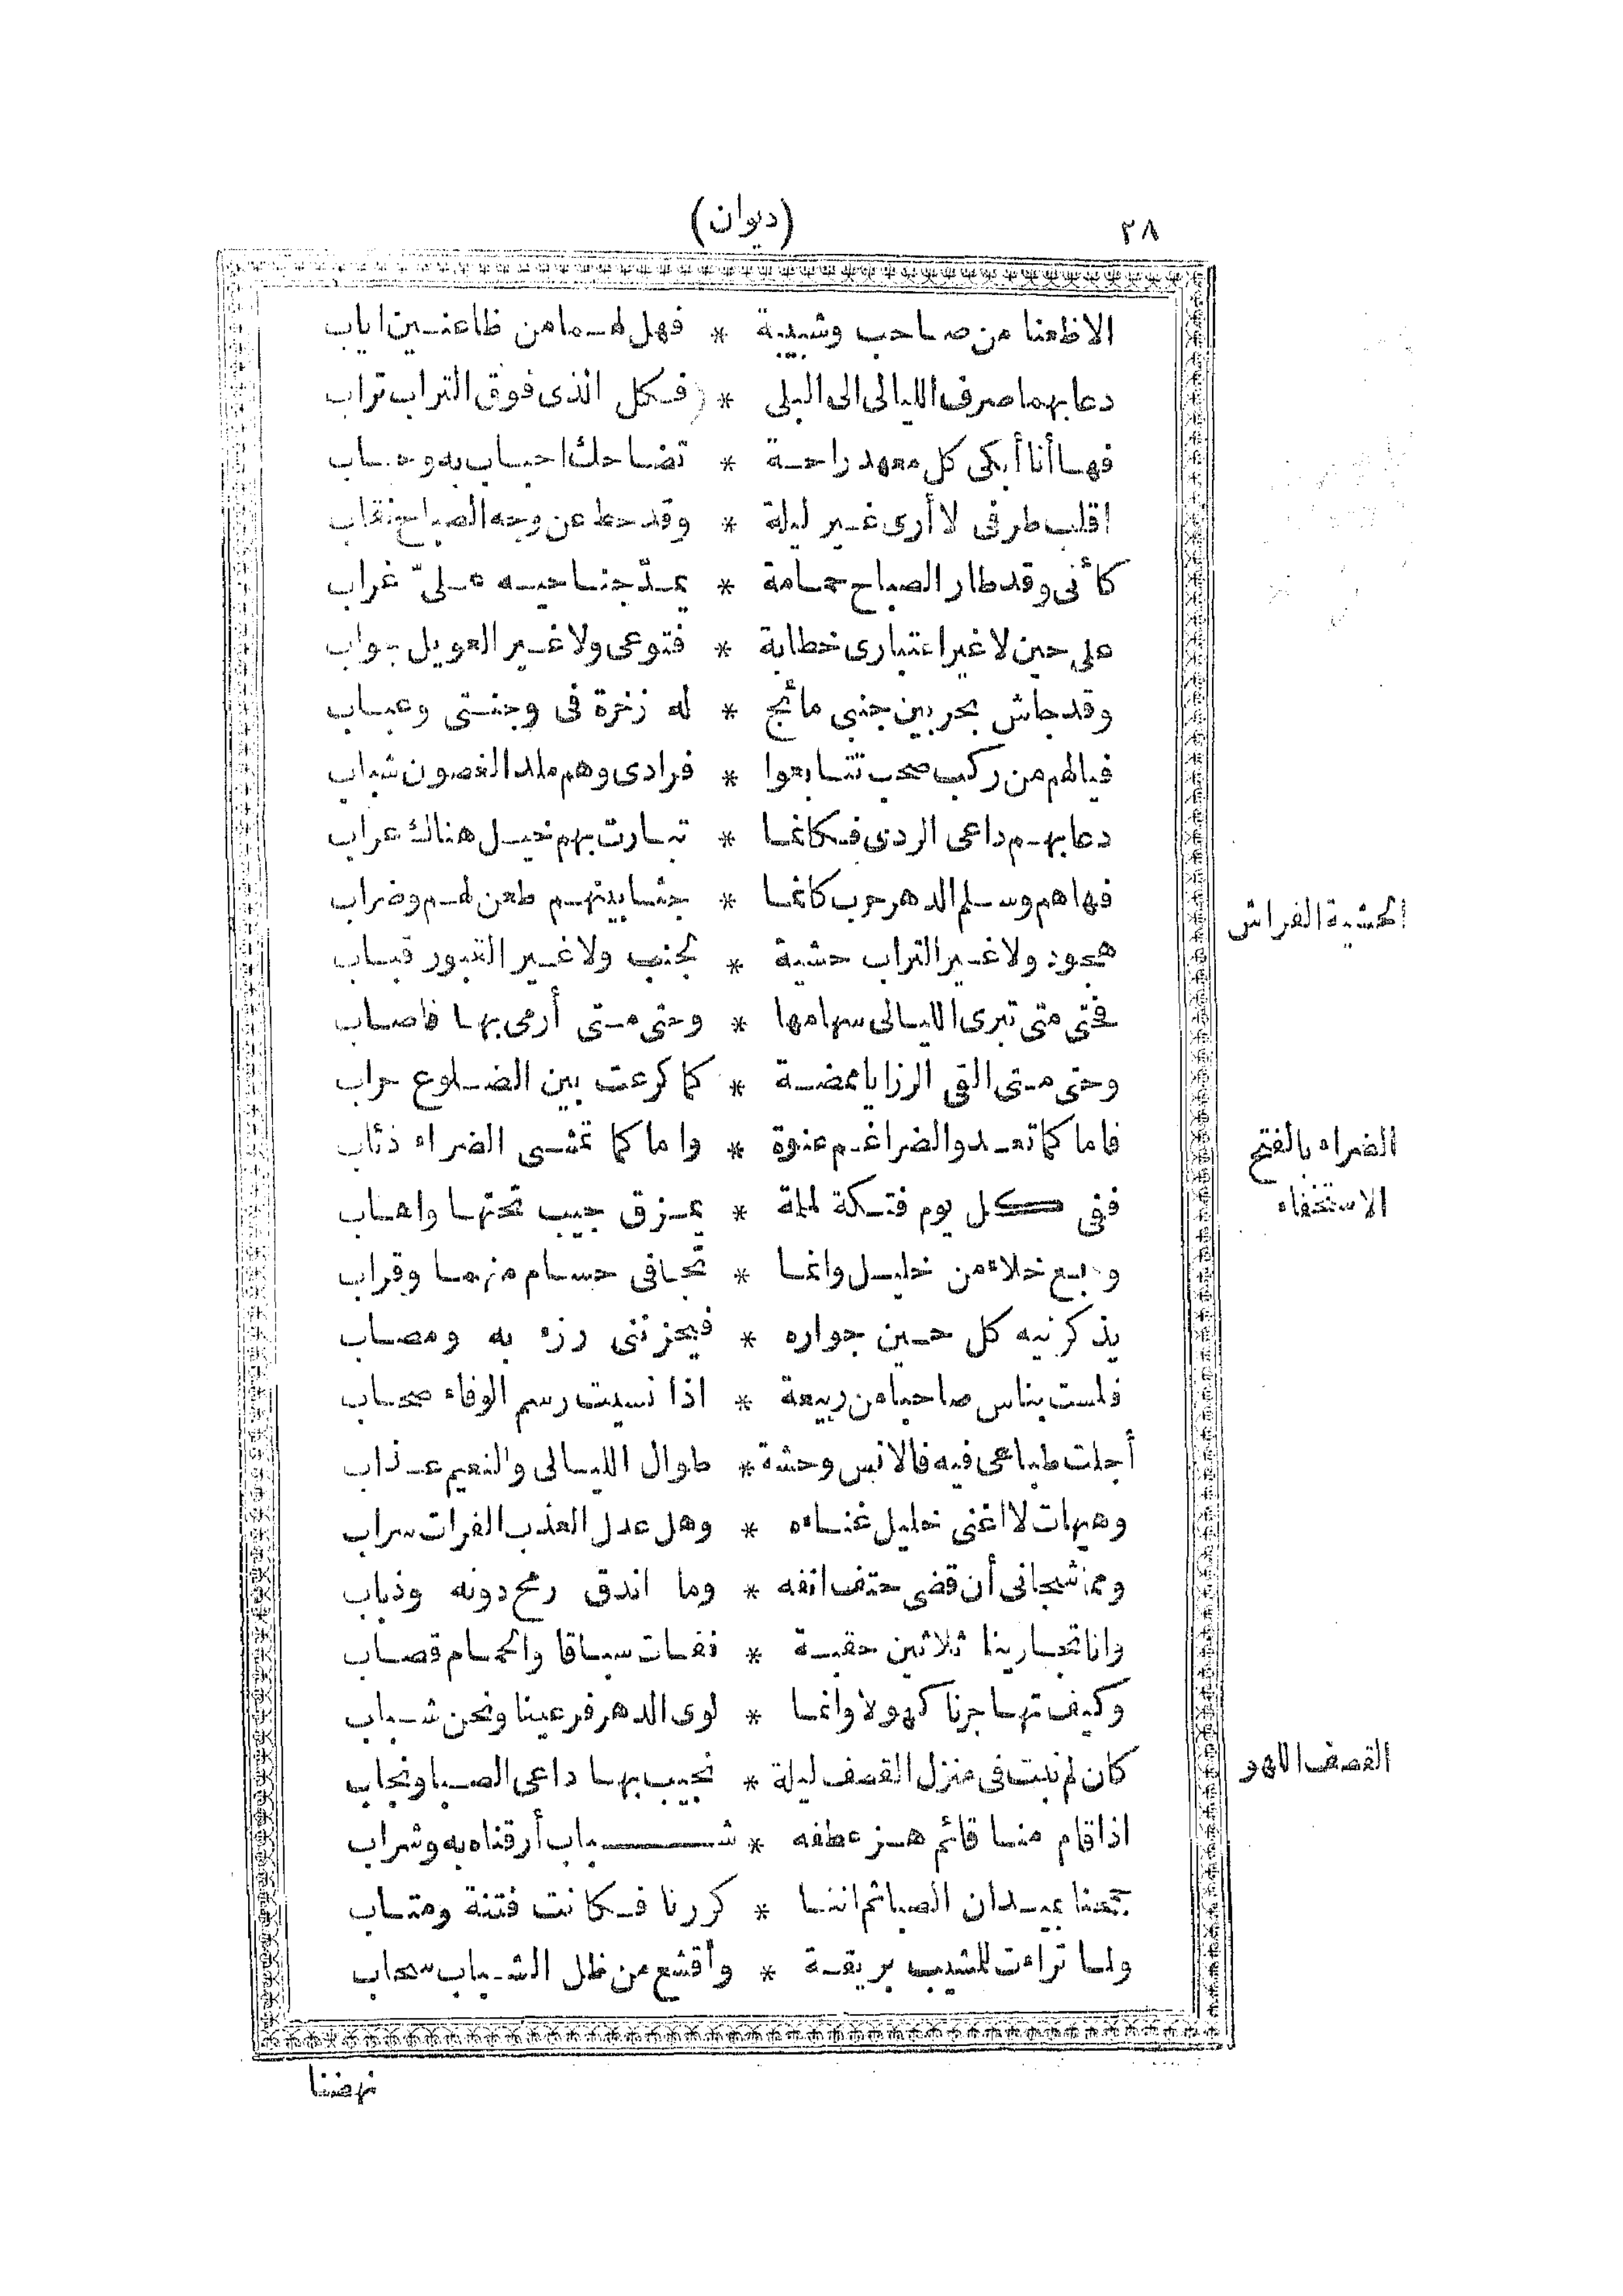 ٢٨
(ديوان)
الا ظعنا من صاحب وشبيبة * فهل لهما من ظاعنين اياب
دعا بهما صرف الليالى الى البلى * فكل الذى فوق التراب تراب
فها أنا أبكى كل معهد راحة * تضاحك احباب به وحباب
اقلب طرفى لا أرى غير ليلة * وقد حط عن وجه الصباح نقاب
كأنى وقد طار الصباح حمامة * يمدّ جناحيه علىّ غراب
على حين لا غير اعتبارى خطابة * فتوعى ولا غير العويل جواب
وقد جاش بحر بين جنبى مائج * له زخرة فى وجنتى وعباب
فيالهم من ركب صحب تتابعوا * فرادى وهم ملد الغصون شباب
دعا بهم داعى الردى فكانما * تبارت بهم خيل هناك عراب
فها هم وسلم الدهر حرب كانما * جثا بينهم طعن لهم وضراب
هجود ولا غير التراب حشية * لجنب ولا غير القبور قباب
الحشية الفراش
فحتى متى تبرى الليالى سهامها * وحتى متى أرمى بها فاصاب
وحتى متى القى الرزايا ممضة * كما كرعت بين الضلوع حراب
فاما كما تعدو الضراغم عنوة * واما كما تمشى الضراء ذئاب
الضراء بالفتح
الاستخفاء
ففى كل يوم فتكة لملمة * يمزق جيب تحتها واهاب
وربع خلاء من خليل وانما * تجافى حسام منهما وقراب
يذكرنيه كل حسين جواره * فيحزننى رزء به ومصاب
فلست بناس صاحبا من ربيعة * اذا نسيت رسم الوفاء صحاب
أجلت طباعى فيه فالانس وحشة * طوال الليالى والنعيم عذاب
وهيهات لا اغنى خليل غناءه * وهل عدل العذب الفرات سراب
ومما شجانى أن قضى حتف انفه * وما اندق رمح دونه وذباب
وانا تجارينا ثلاثين حقبة * ففات سباقا والحمام قصاب
وكيف تهاجرنا كهولا وانما * لوى الدهر فرعينا ونحن شباب
كان لم نبت فى منزل القصف ليلة * نجيب بها داعى الصبا ونجاب
القصف اللهو
اذا قام منا قائم هز عطفه * شباب أرقناه به وشراب
جمعنا بميدان الصبا ثم اننا * كررنا فكانت فتنة ومتاب
ولما تراءت للشيب بريقة * وأقشع من ظل الشباب سحاب
نهضنا